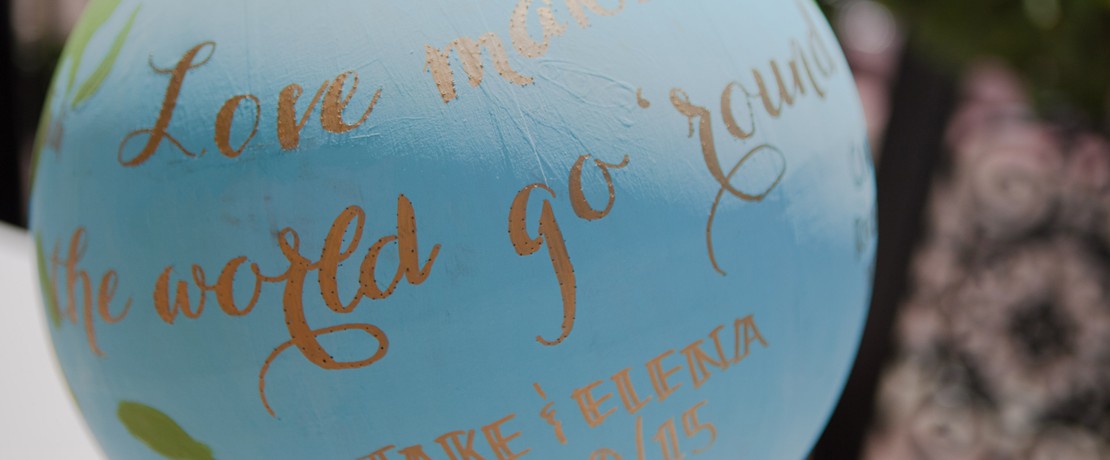 Love
the world go 'round
& ELENA
/15